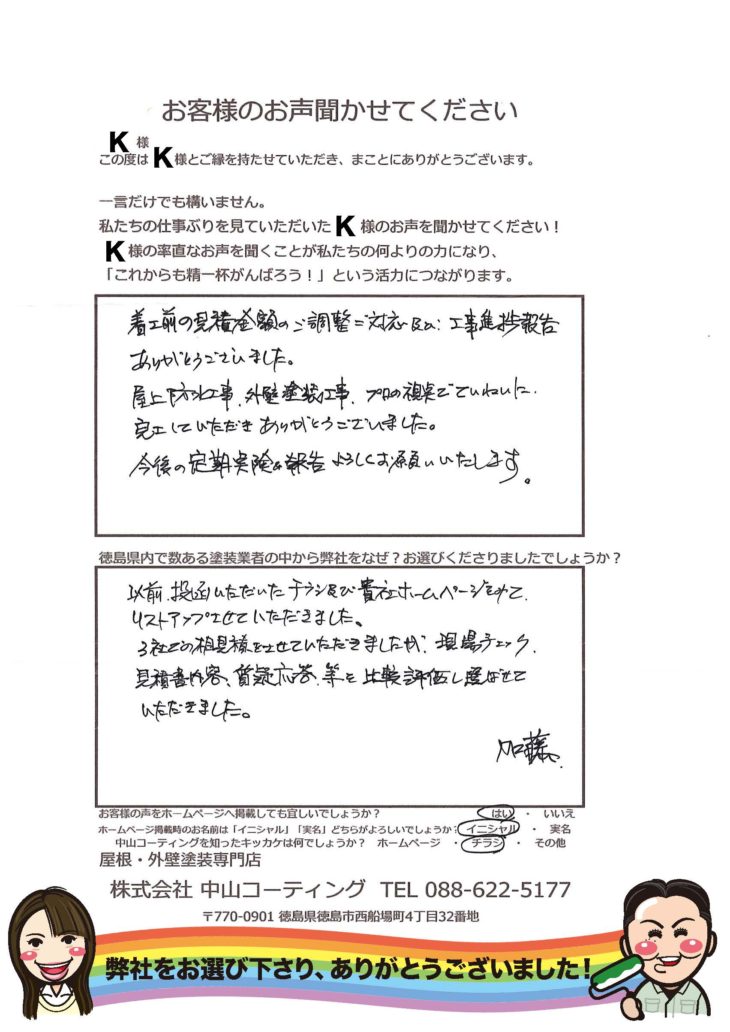 お客様のお声聞かせてください
K 様
この度は K 様とご縁を持たせていただき、まことにありがとうございます。
一言だけでも構いません。
私たちの仕事ぶりを見ていただいた K 様のお声を聞かせてください！
K 様の率直なお声を聞くことが私たちの何よりの力になり、
「これからも精一杯がんばろう！」という活力につながります。
着工前の見積金額のご調整ご対応及び工事進捗報告
ありがとうございました。
屋上防水工事、外壁塗装工事、プロの視点でていねいに
完工していただきありがとうございました。
今後の定期実険&報告よろしくお願いいたします。
徳島県内で数ある塗装業者の中から弊社をなぜ？お選びくださりましたでしょうか？
以前、投函いただいたチラシ及び貴社ホームページをみて、
リストアップさせていただきました。
3社での相見積をさせていただきましたが、現場チェック、
見積書内容、質疑応答、等を比較評価し選ばせて
いただきました。
加藤
お客様の声をホームページへ掲載しても宜しいでしょうか？ はい ・ いいえ
ホームページ掲載時のお名前は「イニシャル」「実名」どちらがよろしいでしょうか？ イニシャル ・ 実名
中山コーティングを知ったキッカケは何でしょうか？ ホームページ ・ チラシ ・ その他
屋根・外壁塗装専門店
株式会社 中山コーティング TEL 088-622-5177
〒770-0901 徳島県徳島市西船場町4丁目32番地
弊社をお選び下さり、ありがとうございました！